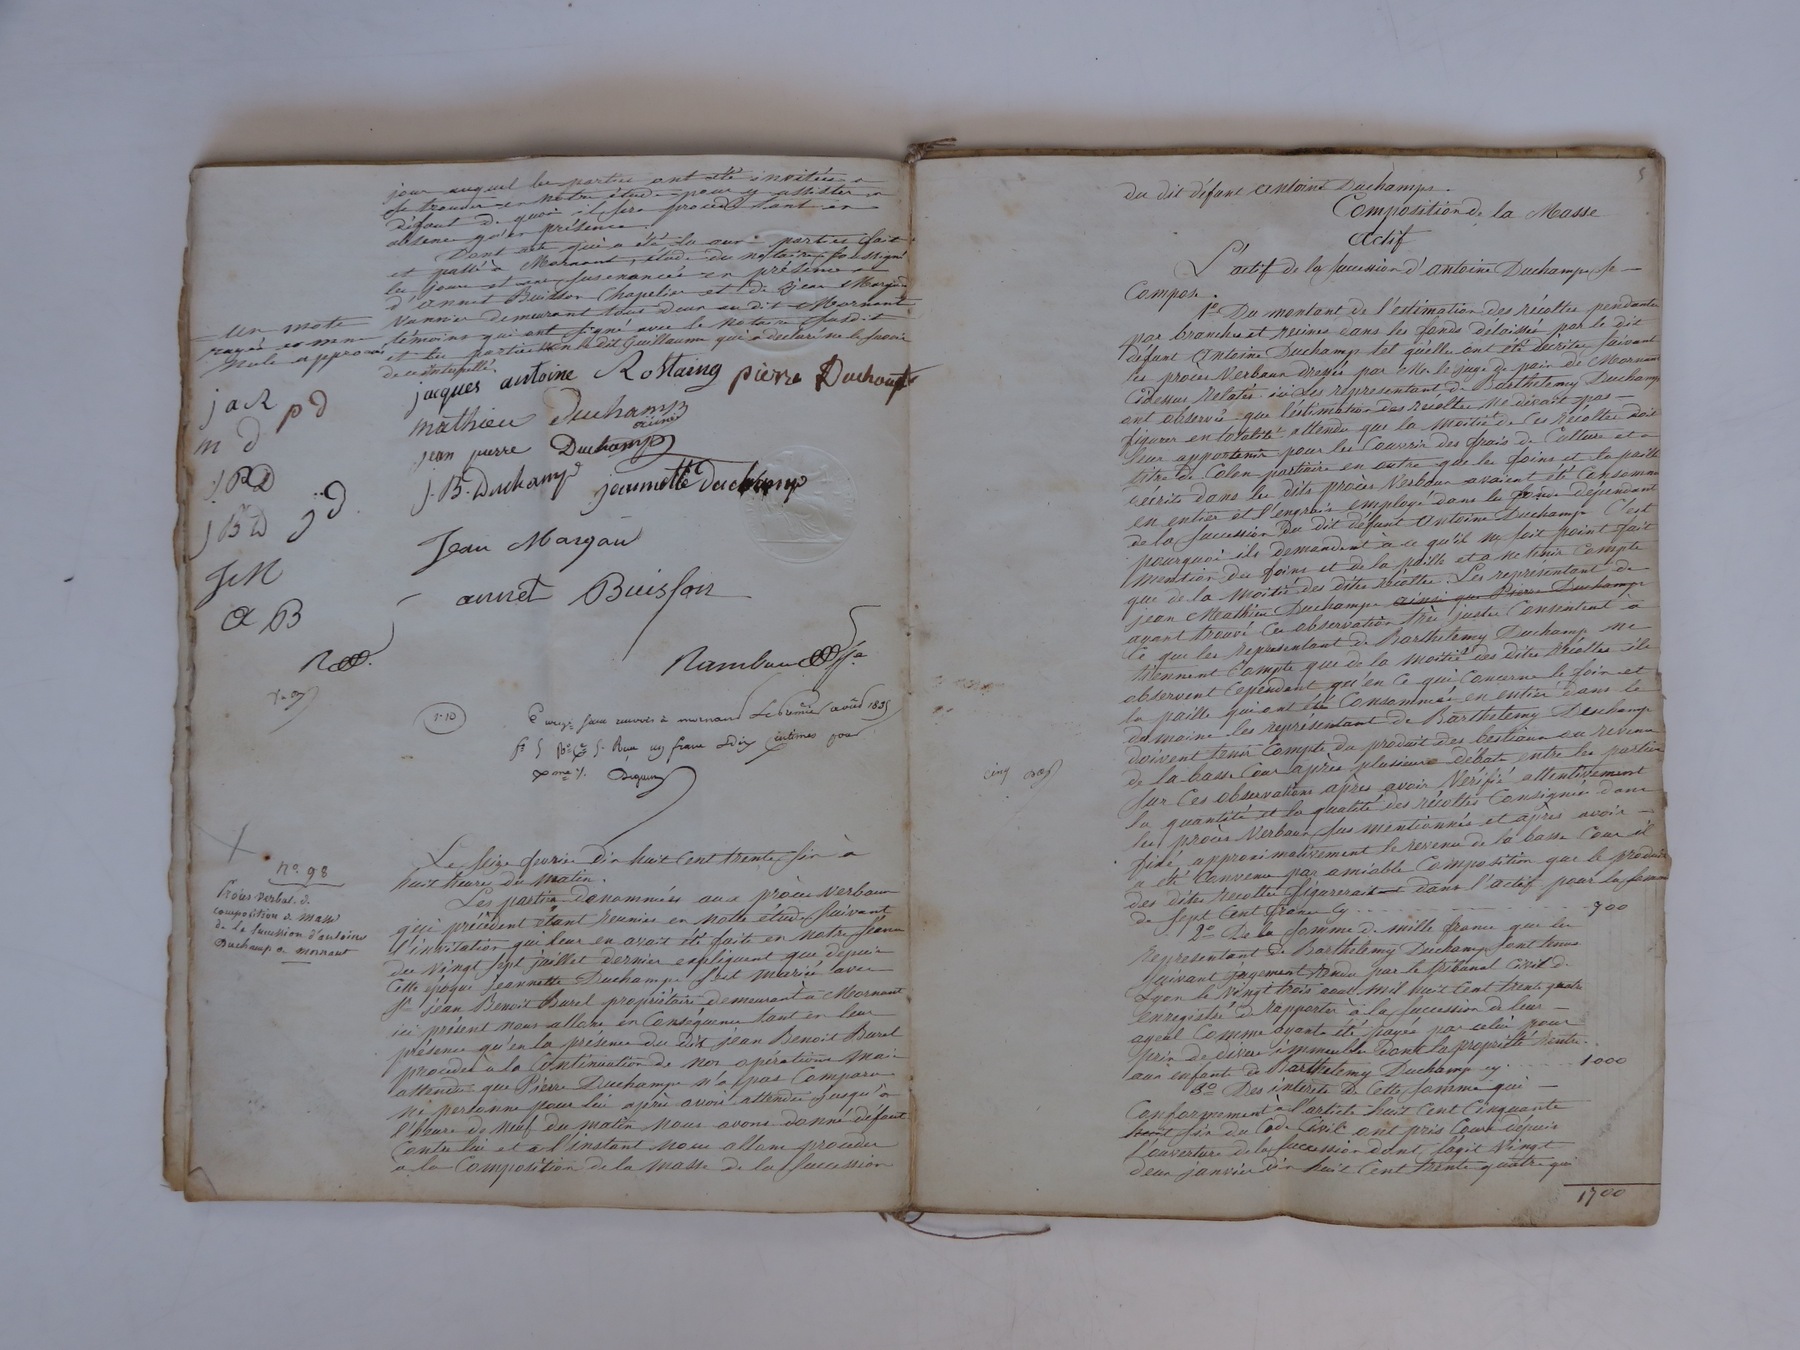 jour auquel les parties ont été invitées à
se trouver en notre étude pour y assister à
défaut de quoi il sera procédé tant en
absence qu'en présence.
Dont acte qui a été lu aux parties fait
et passé à Mornant, étude du notaire soussigné
les jour et an susénoncés en présence
d'annet Buisson Chapelier et de Jean Margau
Vannier demeurant tous deux au dit Mornant
témoins qui ont signé avec le notaire susdit
et les parties non le dit Guillaume qui a déclaré ne le savoir
de ce interpellé.
un mot
rayé comme
nul approuvé
jaR pd
m d
JPD
JBD jd
JM
a B
R
jacques antoine Rottaing pierre Duchamp
mathieu Duchamp
jean pierre Duchamp ainé
J.B. Duchamp jeannette duchamp
Jean Margau
annet Buisson
1.10
Enregt. sans renvois à mornand le premier août 1835
fo 5 Ro Ces 5. Reçu un franc dix centimes pour
Xme %.
No 98
Procès verbal de
composition de masse
de la succession d'antoine
Duchamp de mornant
Le seize fevrier dix huit cent trente six à
huit heures du matin.
Les parties dénommées aux procès verbaux
qui précèdent étant reunies en notre étude suivant
l'invitation qui leur en avait été faite en notre séance
du Vingt sept juillet dernier expliquent que depuis
cette époque Jeannette Duchamp s'est mariée avec
Sr jean Benoit Burel propriétaire demeurant à Mornant
ici présent nous allons en conséquence tant en leur
présence qu'en la présence du dit jean Benoit Burel
procéder à la continuation de nos opérations mais
attendu que Pierre Duchamp n'a pas Comparu
ni personne pour lui après avoir attendu jusqu'à
l'heure de neuf du matin nous avons donné défaut
contre lui et à l'instant nous allons procéder
à la Composition de la masse de la succession
5
du dit défunt antoine Duchamp.
Composition de la Masse
Actif
L'actif de la succession d'antoine Duchamp se
Compose.
1o Du montant de l'estimation des récoltes pendantes
par branches et racines dans les fonds délaissés par le dit
défunt Antoine Duchamp tel qu'elles ont été décrites suivant
les procès Verbaux dressés par Mr le juge de paix de Mornant
cidessus relatés. ici les representant de Barthelemy Duchamp
ont observé que l'estimation des récoltes ne devait pas
figurer en totalité attendu que la moitié de ces récoltes doit
leur appartenir pour les couvrir des frais de Culture et à
titre de Colon partiaire en outre que les foins et la paille
décrits dans les dits procès Verbaux avaient été Consommés
en entier et l'engrais employé dans les fonds dépendant
de la succession du dit défunt antoine Duchamp C'est
pourquoi ils demandent à ce qu'il ne soit point fait
mention des foins et de la paille et à ne tenir Compte
que de la moitié des dites récoltes. Les représentant de
jean Mathieu Duchamp ainsi que Pierre Duchamp
ayant trouvé ces observations très justes Consentent à
ce que les representant de Barthelemy Duchamp ne
tiennent Compte que de la moitié des dites récoltes ils
observent Cependant qu'en ce qui concerne le foin et
la paille qui ont été consommés en entier dans le
domaine les représentant de Barthelemy Duchamp
doivent tenir Compte du produit des bestiaux ou revenu
de la basse Cour après plusieurs débats entre les parties
sur ces observations après avoir Vérifié attentivement
la quantité et la qualité des récoltes Consignées dans
les procès Verbaux sus mentionnés et après avoir
fixé approximativement le revenu de la basse Cour il
a été convenu par amiable composition que le produit
des dites récoltes figurerait dans l'actif pour la somme
de sept cent francs cy 700
2o De la somme de mille francs que les
Représentant de Barthelemy Duchamp sont tenus
suivant jugement rendu par le tribunal Civil de
Lyon le vingt trois aout mil huit cent trente quatre
enregistré de rapporter à la succession de leur
ayeul comme ayant été payée par celui pour
prix de divers immeubles dont la propriété
aux enfants de Barthelemy Duchamp cy 1000
3o Des intérêts de cette somme qui
Conformément à l'article huit cent cinquante
six du Code Civil ont pris cours depuis
l'ouverture de la succession dont s'agit Vingt
deux janvier dix huit cent trente quatre qui
1700